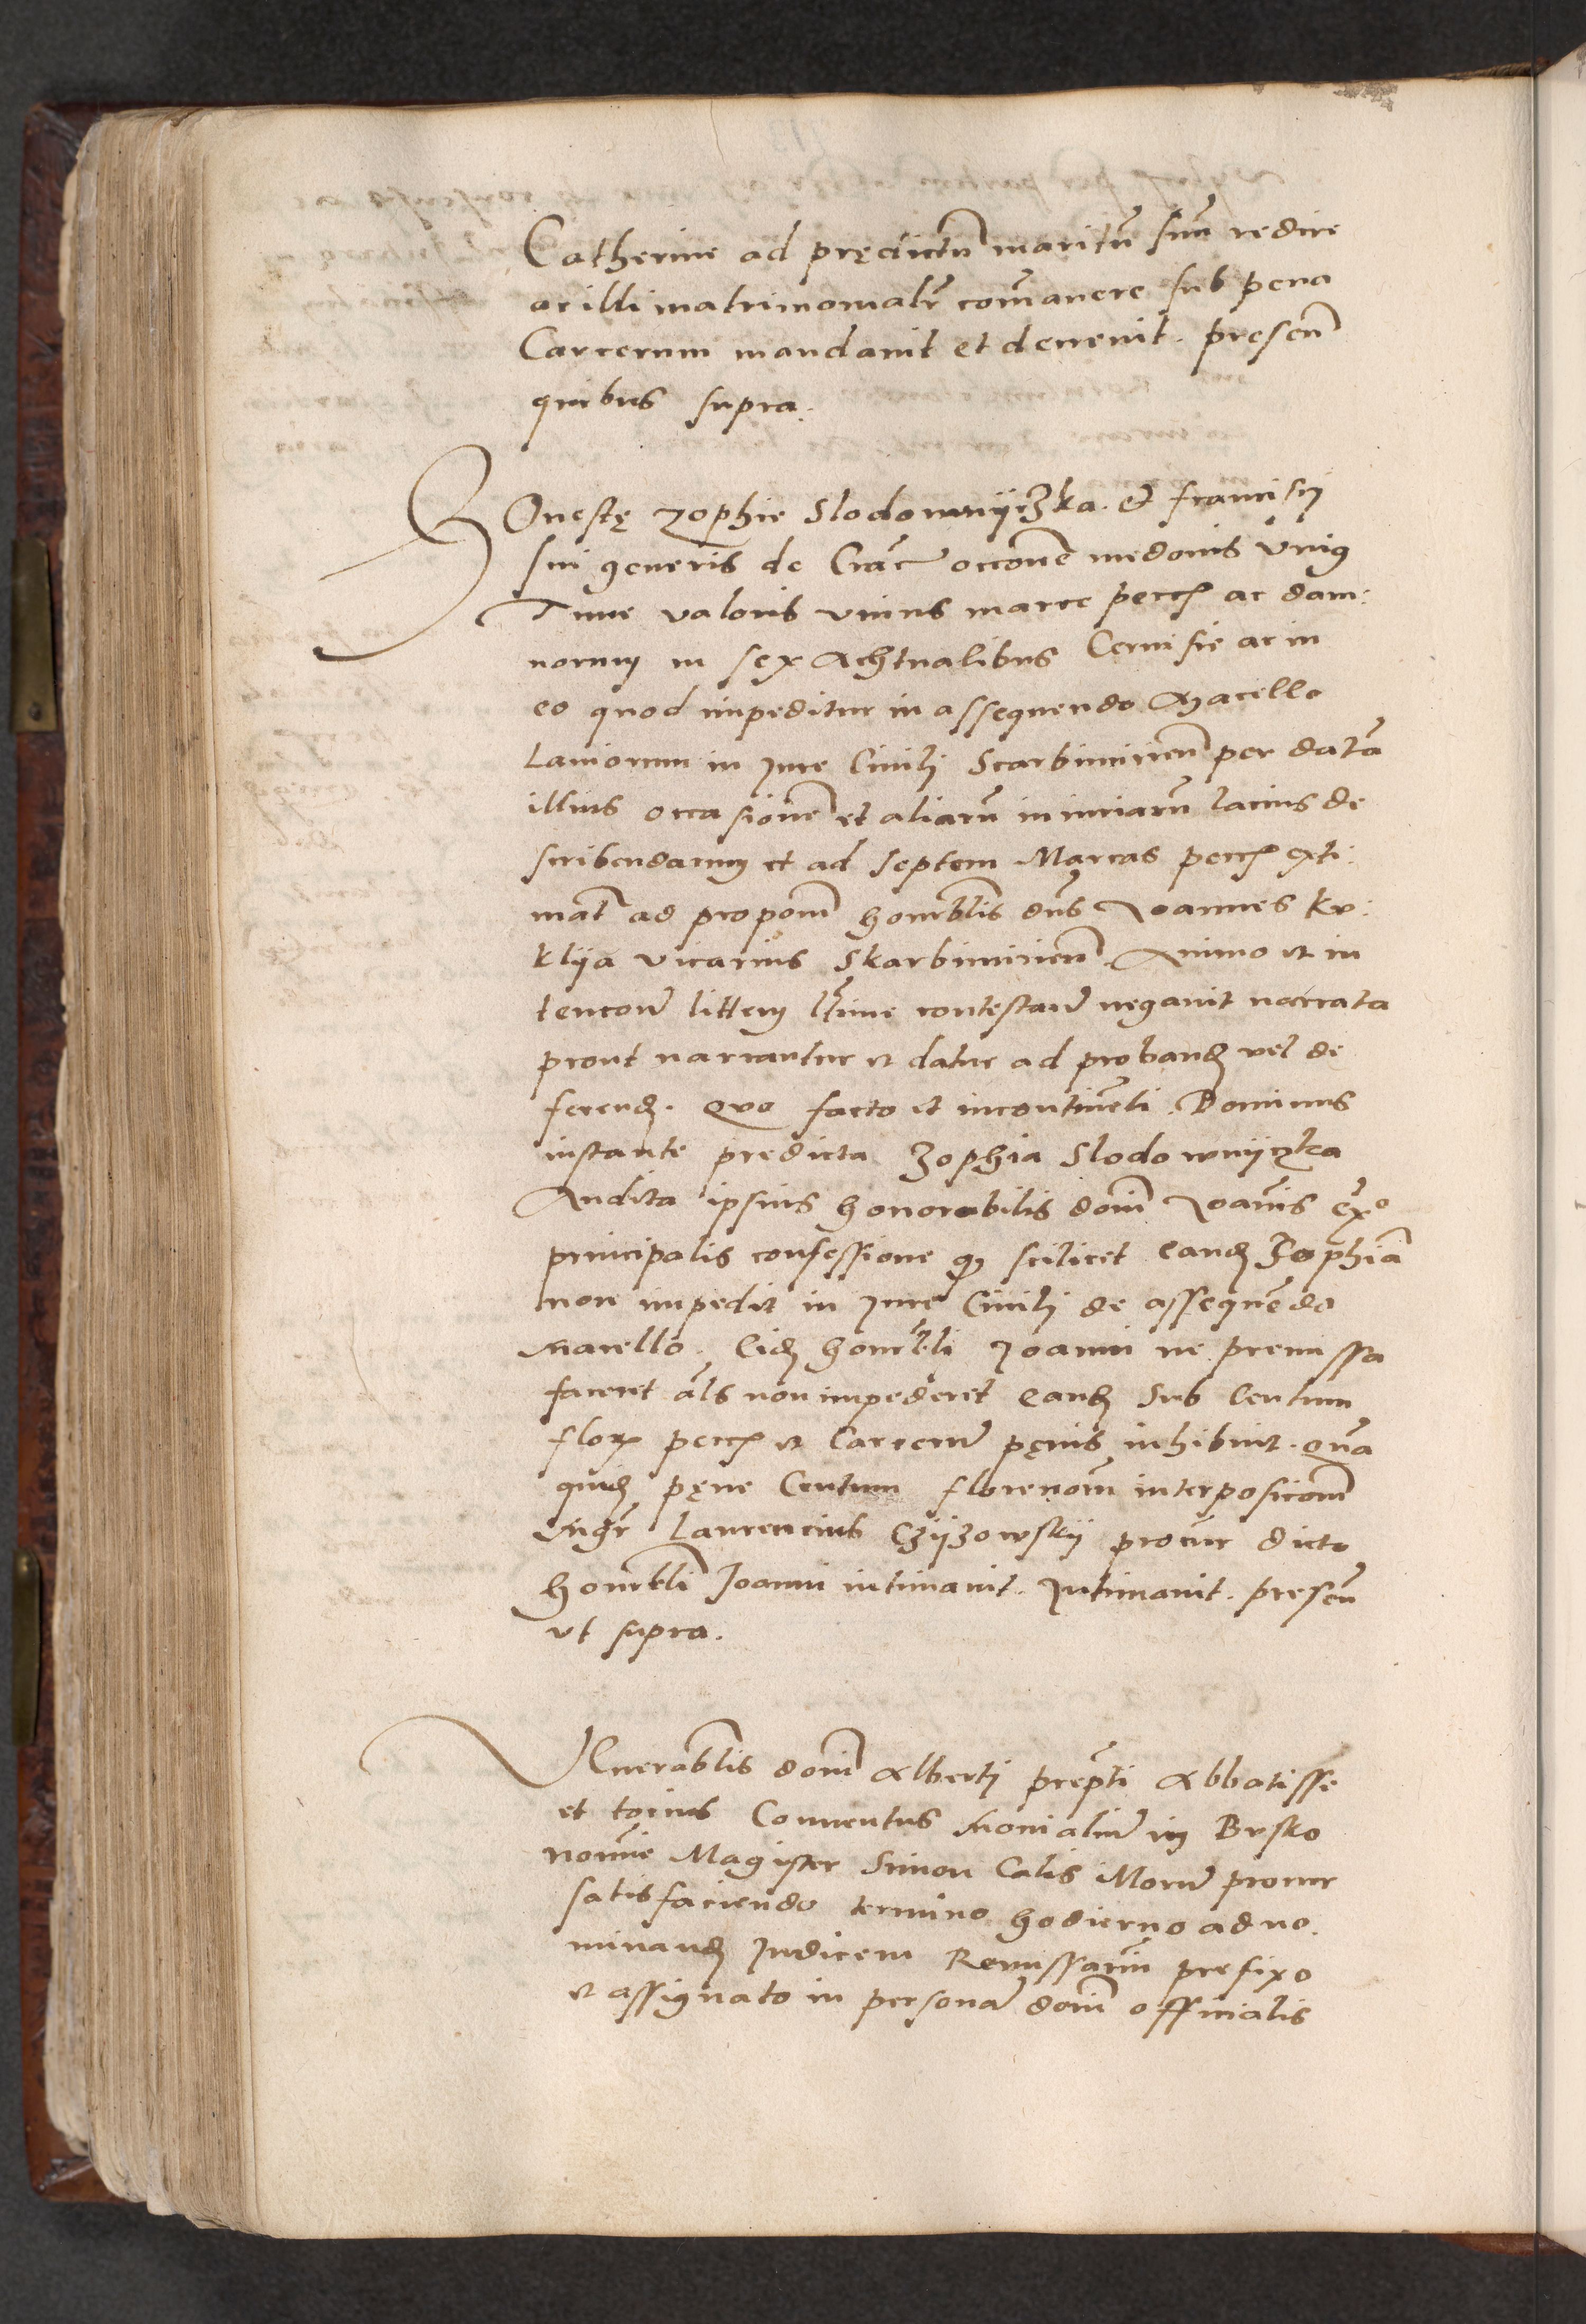 Catherine ad prędictũ maritũ suũ redire
ac illi matrimonialr̃ com̃anere sub pena
Carcerum mandauit et decreuit. presen̄
quibus supra.
Honestę zophie Slodownyczka. et francisci
sui generis de Crać occon̄e medonis vnius
Tune valoris vnius marce peccɫ ac dam:
norum in sex Achtualibus Ceruisie ac in
eo quod impeditur in assequendo Macello
Laniorum in Jure Ciuilj Scarbimirien̄ per datã
illius occasione et aliarũ iniuriarũ lacius de
scribendarum et ad septem Marcas peccɫ exti:
mat̃ ad propom̃ honorbłis dñs Joannes Kv:
klya vicarius Skarbimirien̄. Animo et in
tencon̄ littem łtime contestan̄ negauit narrata
prout narrantur et datur ad proband vel de
ferend. Quo facto et incontinẽti Dominus
instante predicta Zophia Slodownyczka
Audita ipsius honorabilis dom̃ Joañis ex̃º
principalis confessione qɜ scilicet eand Zophiã
non impedit in Jure Ciuilj de assequẽdo
Macello. Eid honorbłi Joanni ne premissa
faceret ałs non impederet eand Sub Centum
floɼ peccɫ et Carcerũ pęnis inhibuit. Qua
quid pęne Centum florenom̃ interposicom̃
Mgr̃ Laurencius Czyzowsky procur dicto
honorbłi Joanni intimauit. Intimauit. presen̄
vt supra.
Venerabłis dom̃ Albertj prep̃ti Abbatisse
et tocius Conuentus Monialiũ in Busko
noĩe Magister Simon Calis Morũ procur
satisfaciendo termino hodierno ad no.
minand Judicem Remissariũ prefixo
et assignato in persona dom̃ officialis